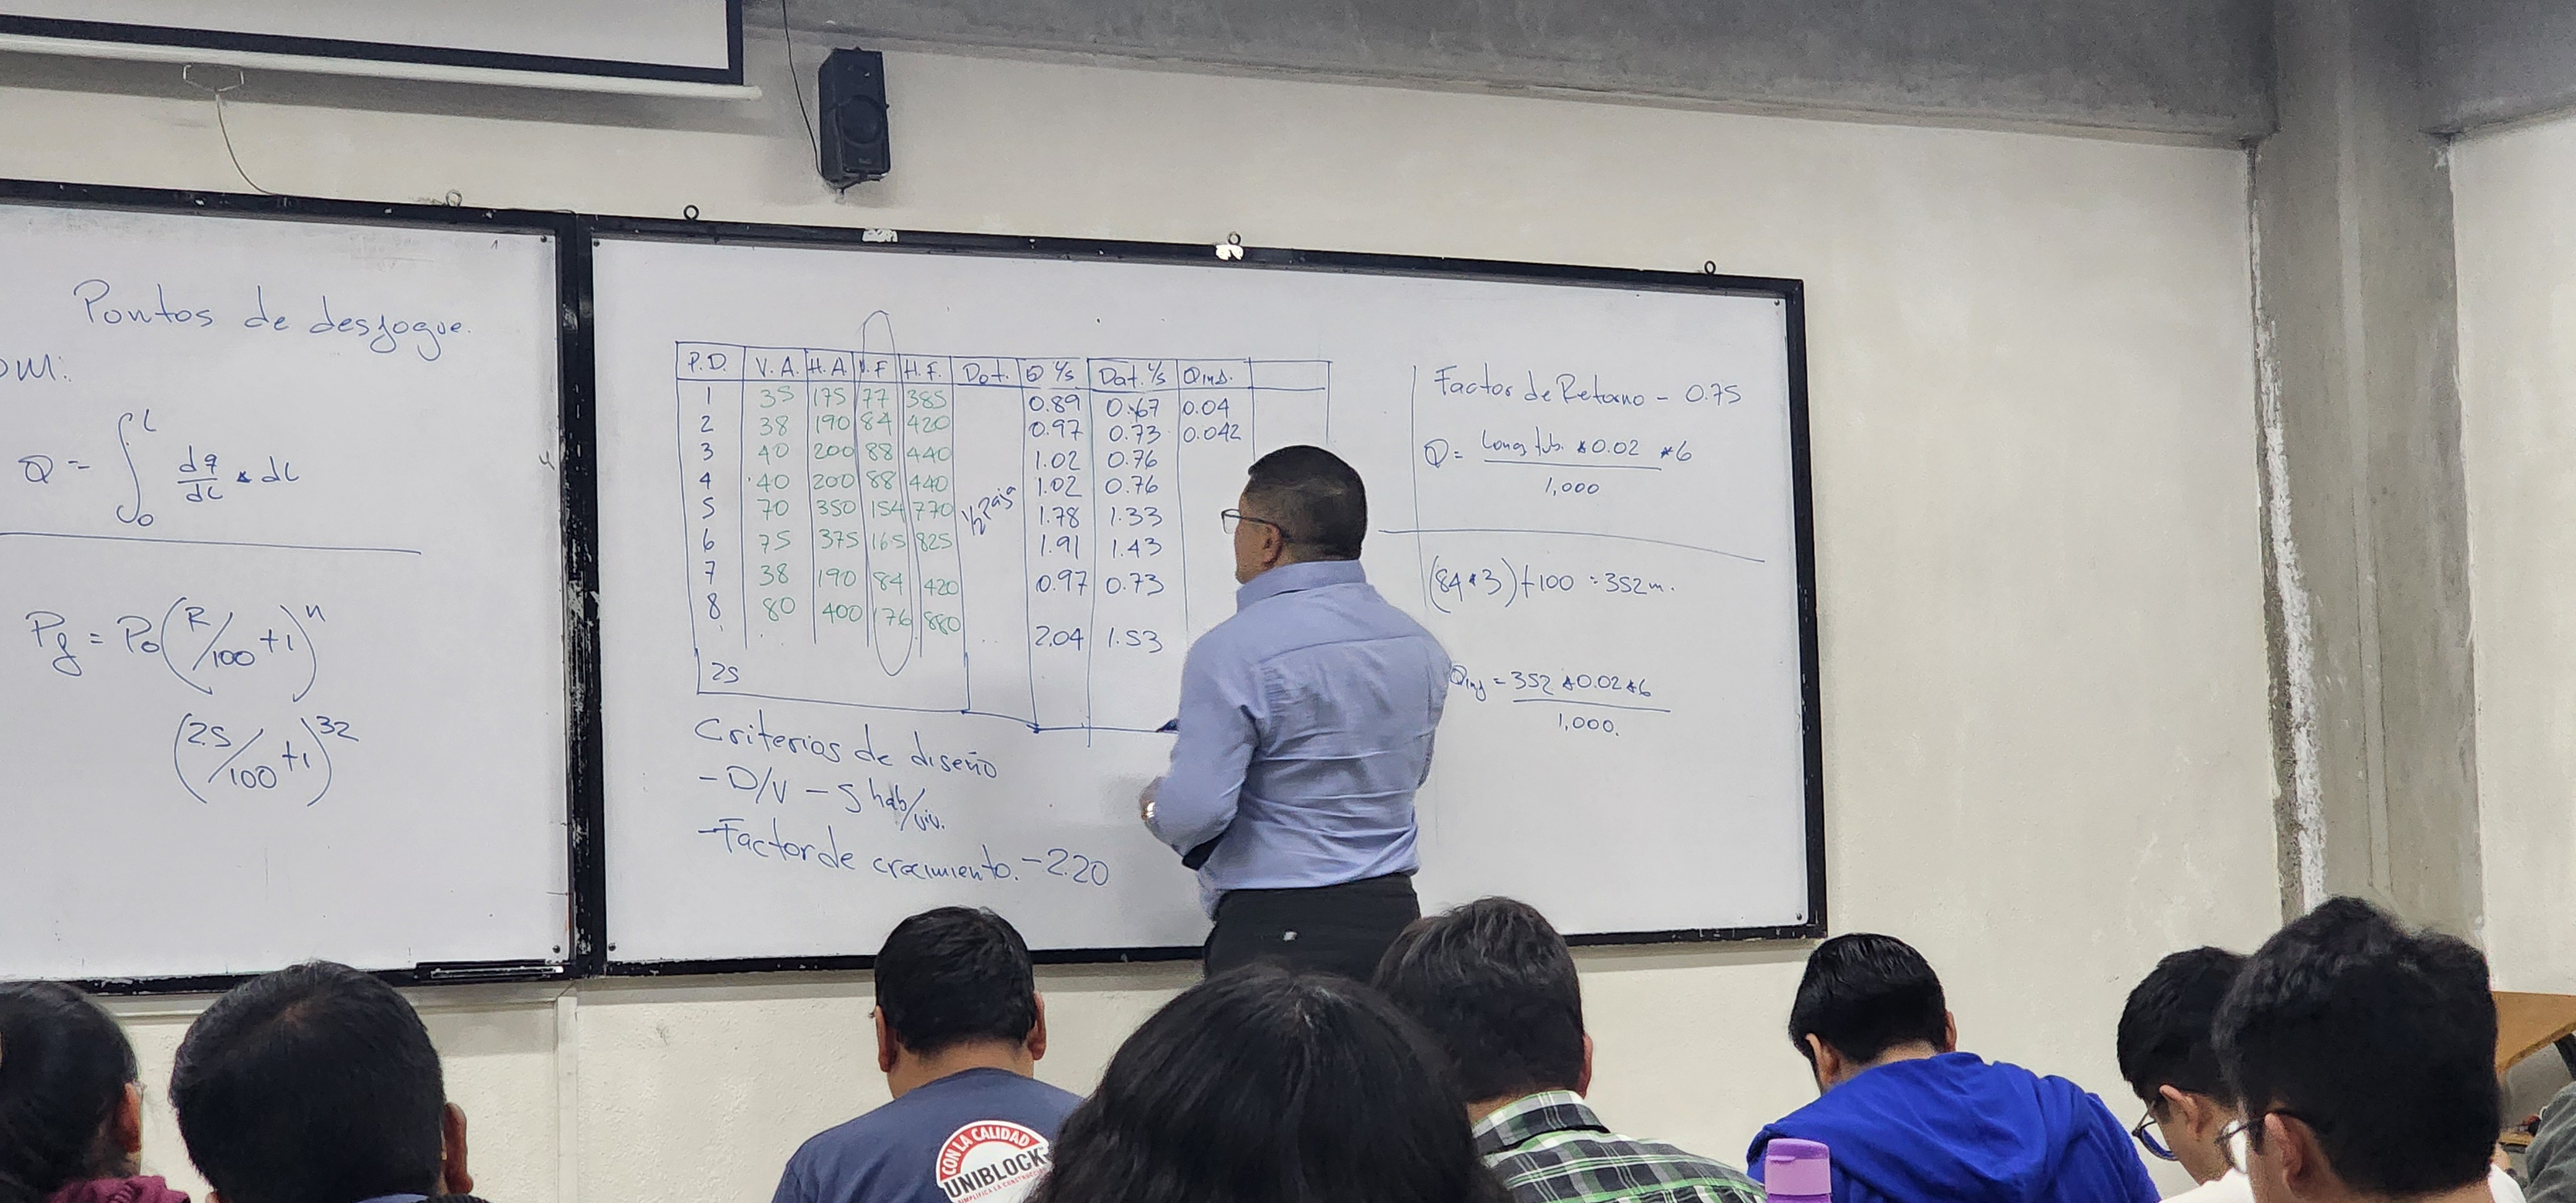 Puntos de desfogue.
OM:
Q = ∫₀ᴸ dq/dL * dL
Pf = Po(R/100 + 1)ⁿ
(2.5/100 + 1)³²
P.D. V.A. H.A. V.F H.F. Dot. Q l/s Dot. l/s Qinf.
1 35 175 77 385 0.89 0.67 0.04
2 38 190 84 420 0.97 0.73 0.042
3 40 200 88 440 1.02 0.76
4 40 200 88 440 1.02 0.76
5 70 350 154 770 1/2 Paja 1.78 1.33
6 75 375 165 825 1.91 1.43
7 38 190 84 420 0.97 0.73
8 80 400 176 880 2.04 1.53
25
Criterios de diseño
- D/V - 5 hab/viv.
- Factor de crecimiento. - 2.20
Factor de Retorno - 0.75
Q = Long tub. * 0.02 * 6
1,000
(84*3)+100 = 352m.
Qinf = 352 * 0.02 * 6
1,000.
CON LA CALIDAD
UNIBLOCK